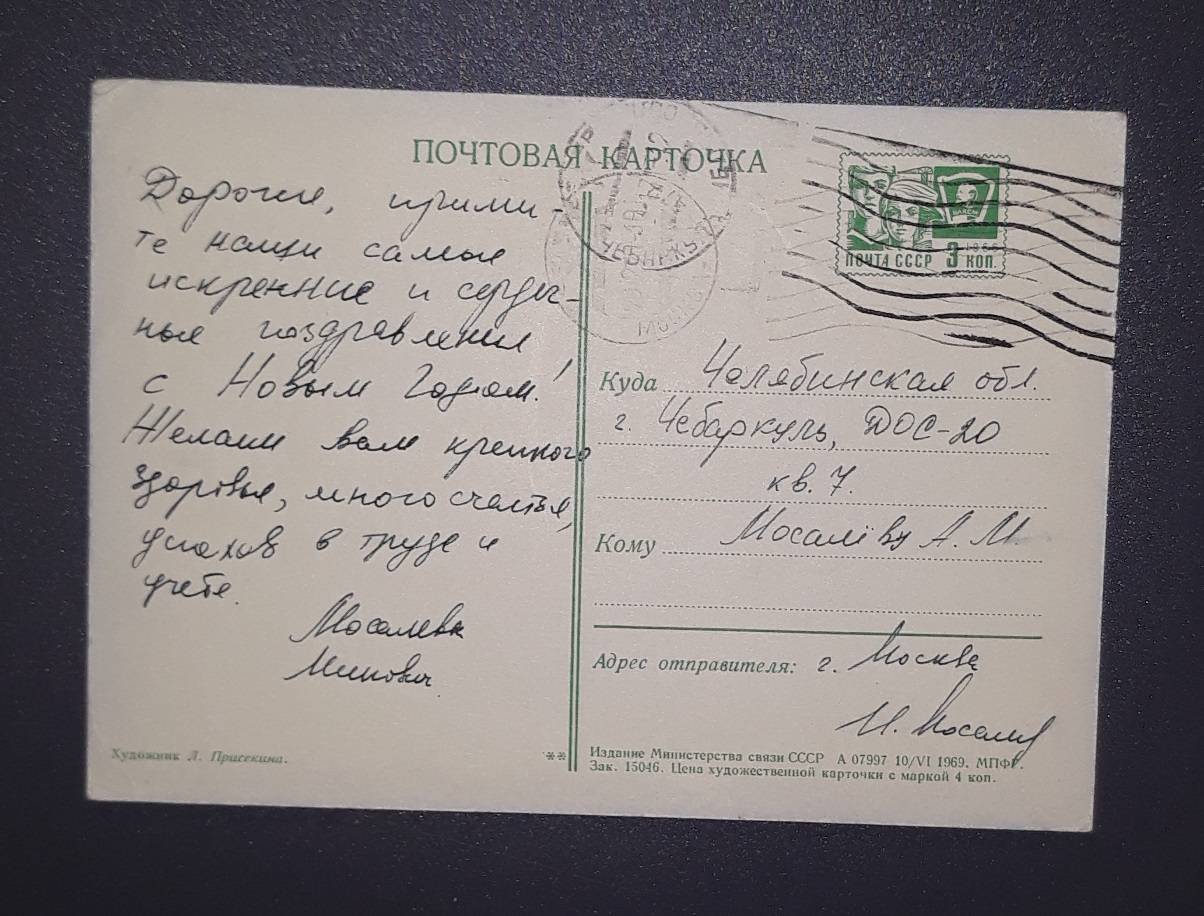 ПОЧТОВАЯ КАРТОЧКА
Дорогие, прими-
те наши самые
искренние и сердеч-
ные поздравления
с Новым Годом!
Желаем вам крепкого
здоровья, много счастья,
успехов в труде и
учебе.
Мосалевы
Художник Л. Присекина.
**
ВЛКСМ
1966
ПОЧТА СССР 3 КОП.
Куда Челябинская обл.
г. Чебаркуль, ДОС-20
кв. 7.
Кому Мосалёву А. М.
Адрес отправителя: г. Москва
Издание Министерства связи СССР А 07997 10/VI 1969. МПФГ.
Зак. 15046. Цена художественной карточки с маркой 4 коп.